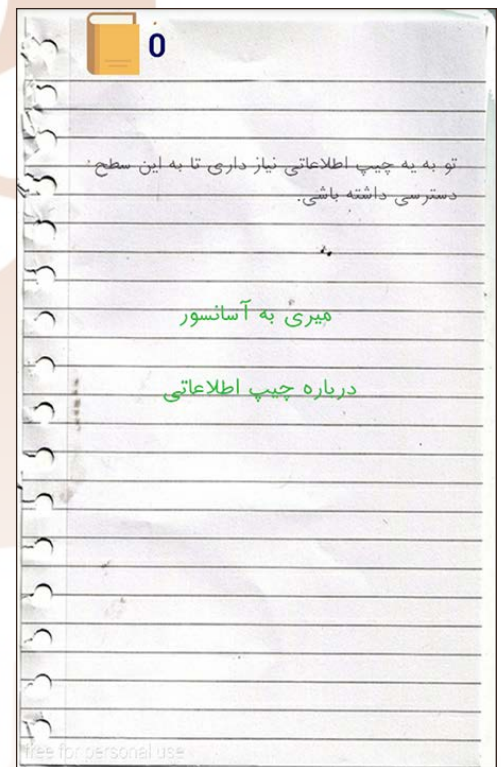 0
تو به یه چیپ اطلاعاتی نیاز داری تا به این سطح
دسترسی داشته باشی.
میری به آسانسور
درباره چیپ اطلاعاتی
free for personal use